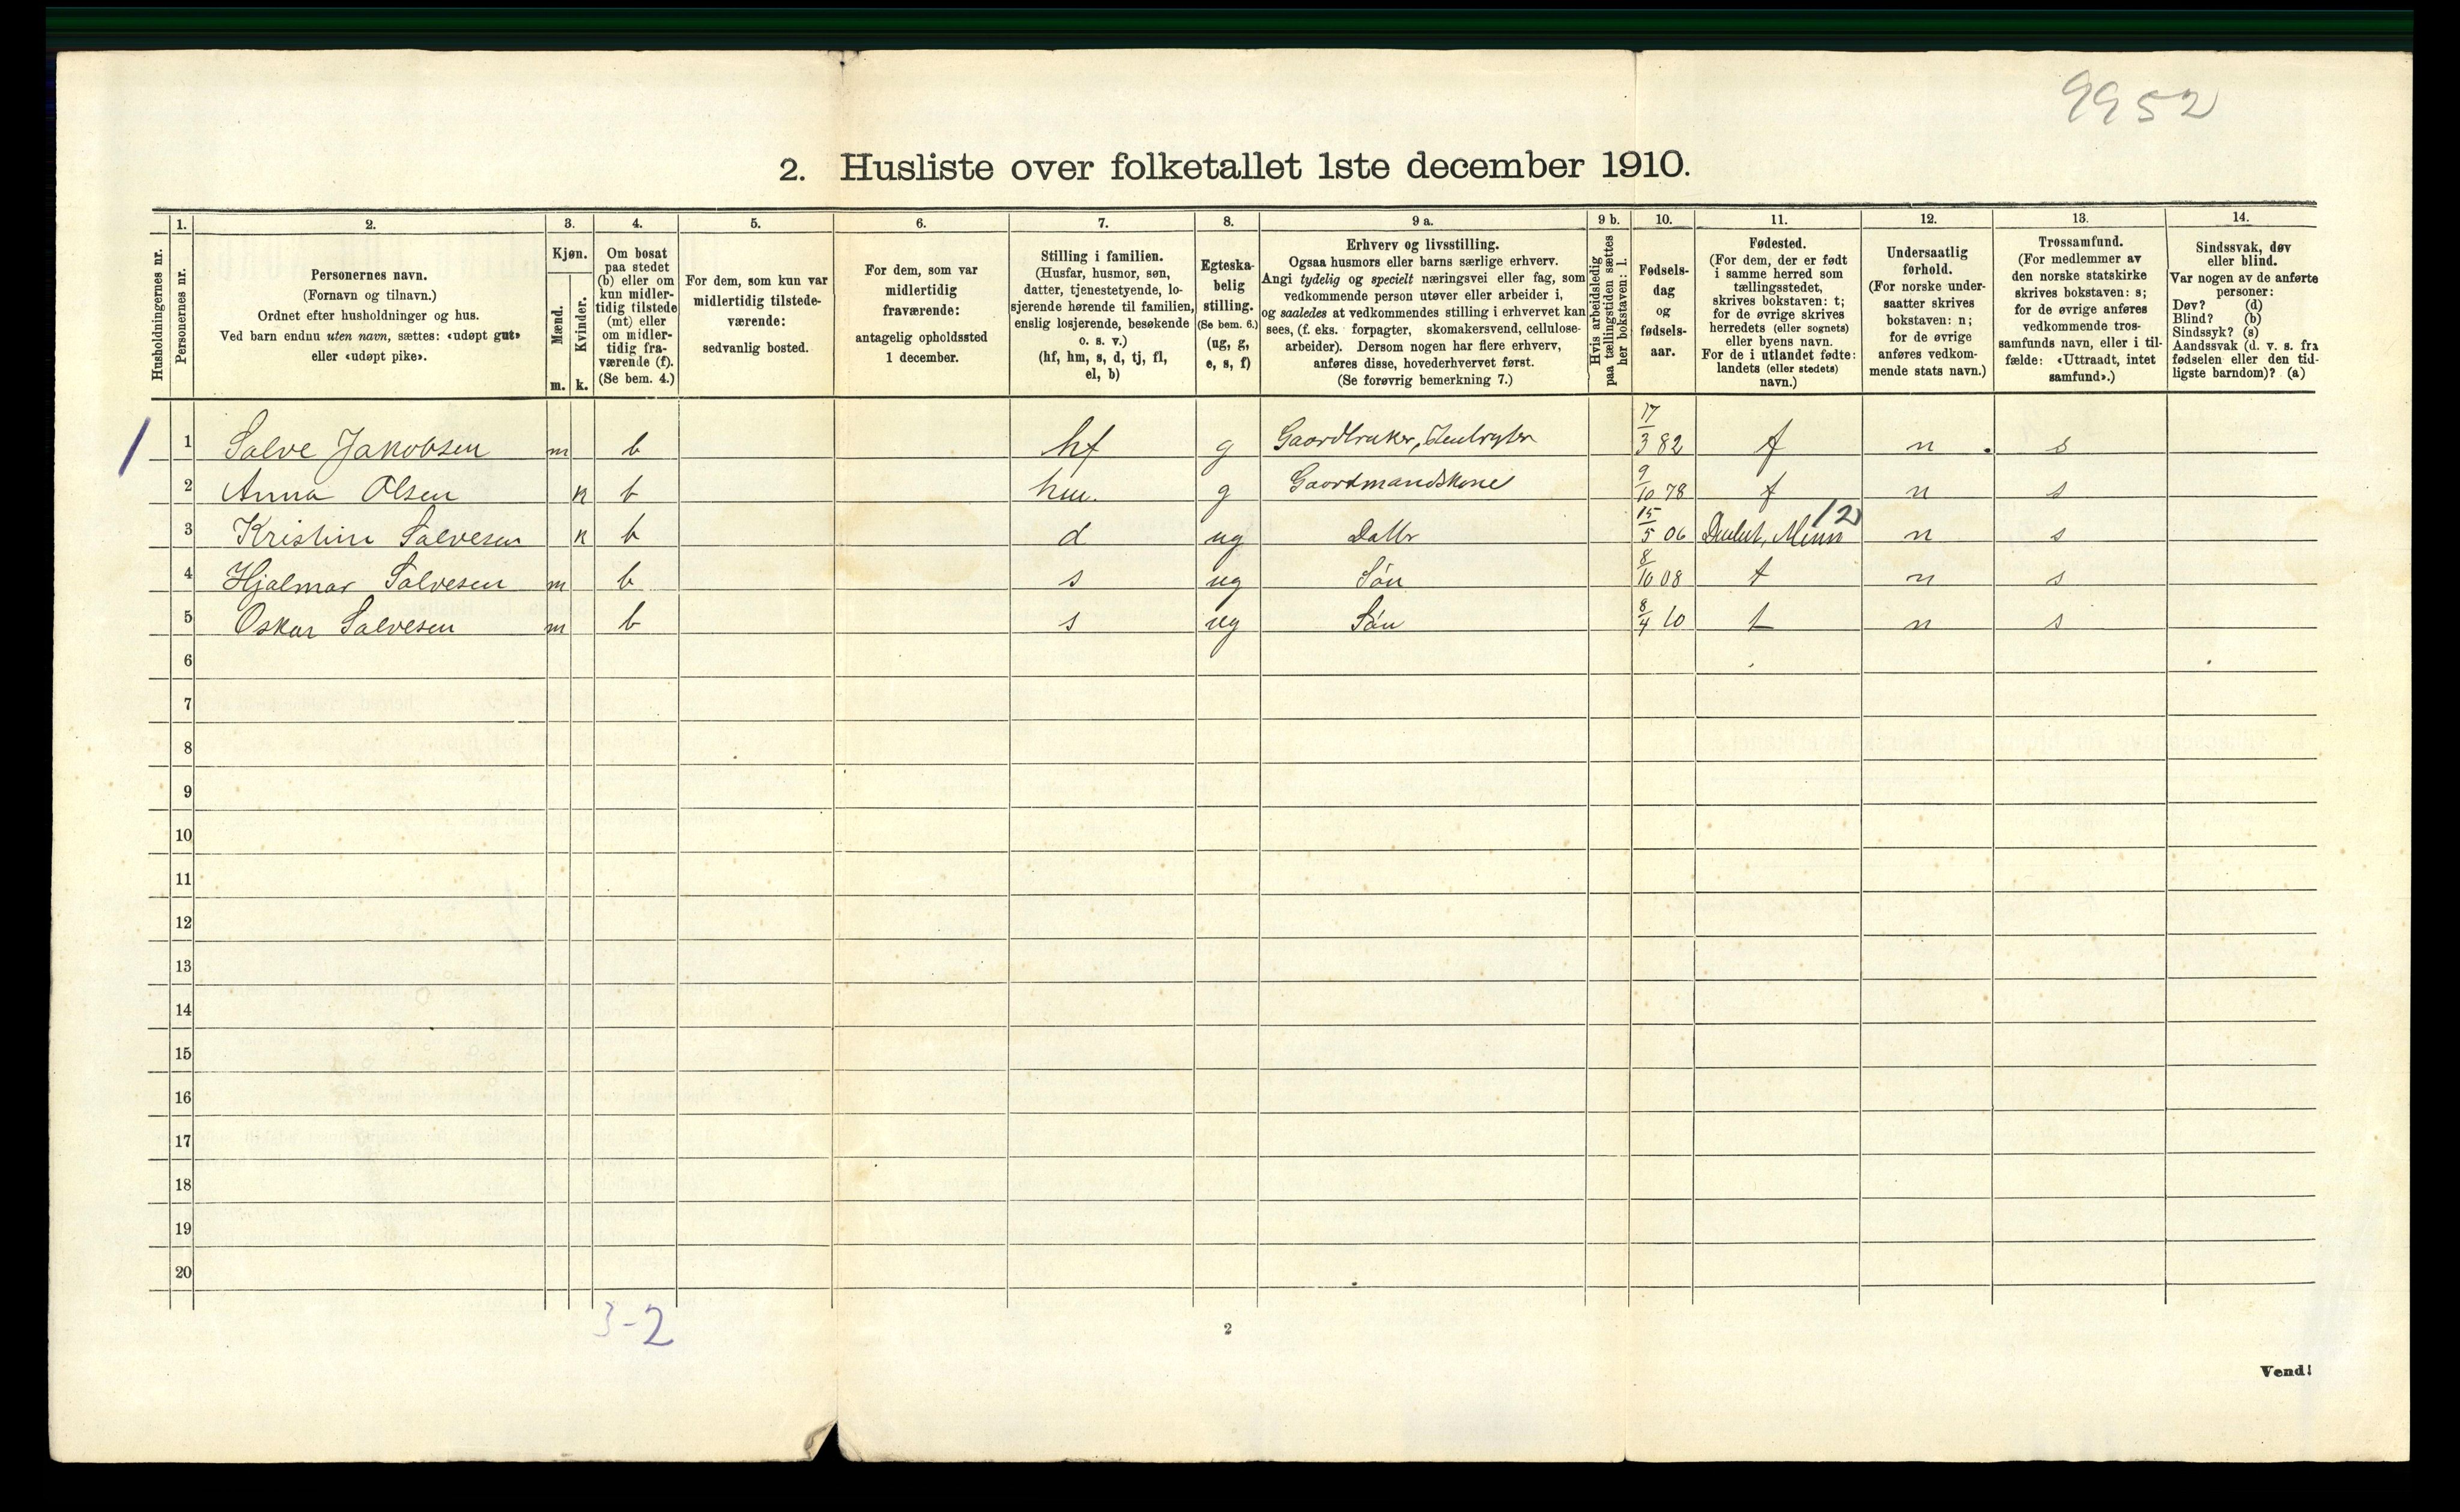 9952
2. Husliste over folketallet 1ste december 1910.
Husholdningernes nr.
1.
Personernes nr.
2.
Personernes navn.
(Fornavn og tilnavn.)
Ordnet efter husholdninger og hus.
Ved barn endnu uten navn, sættes: «udøpt gut»
eller «udøpt pike».
3.
Kjøn.
Mænd.
m.
Kvinder.
k.
4.
Om bosat
paa stedet
(b) eller om
kun midler-
tidig tilstede
(mt) eller
om midler-
tidig fra-
værende (f).
(Se bem. 4.)
5.
For dem, som kun var
midlertidig tilstede-
værende:
sedvanlig bosted.
6.
For dem, som var
midlertidig
fraværende:
antagelig opholdssted
1 december.
7.
Stilling i familien.
(Husfar, husmor, søn,
datter, tjenestetyende, lo-
sjerende hørende til familien,
enslig losjerende, besøkende
o. s. v.)
(hf, hm, s, d, tj, fl,
el, b)
8.
Egteska-
belig
stilling.
(Se bem. 6.)
(ug, g,
e, s, f)
9 a.
Erhverv og livsstilling.
Ogsaa husmors eller barns særlige erhverv.
Angi tydelig og specielt næringsvei eller fag, som
vedkommende person utøver eller arbeider i,
og saaledes at vedkommendes stilling i erhvervet kan
sees, (f. eks. forpagter, skomakersvend, cellulose-
arbeider). Dersom nogen har flere erhverv,
anføres disse, hovederhvervet først.
(Se forøvrig bemerkning 7.)
9 b.
Hvis arbeidsledig
paa tællingstiden sættes
her bokstaven: l.
10.
Fødsels-
dag
og
fødsels-
aar.
11.
Fødested.
(For dem, der er født
i samme herred som
tællingsstedet,
skrives bokstaven: t;
for de øvrige skrives
herredets (eller sognets)
eller byens navn.
For de i utlandet fødte:
landets (eller stedets)
navn.)
12.
Undersaatlig
forhold.
(For norske under-
saatter skrives
bokstaven: n;
for de øvrige
anføres vedkom-
mende stats navn.)
13.
Trossamfund.
(For medlemmer av
den norske statskirke
skrives bokstaven: s;
for de øvrige anføres
vedkommende tros-
samfunds navn, eller i til-
fælde: «Uttraadt, intet
samfund».)
14.
Sindssvak, døv
eller blind.
Var nogen av de anførte
personer:
Døv? (d)
Blind? (b)
Sindssyk? (s)
Aandssvak (d. v. s. fra
fødselen eller den tid-
ligste barndom)? (a)
1 1 Salve Jakobsen m b hf g Gaardbruker, 17/3 82 t n s
2 Anna Olsen k b hm. g Gaardmandskone 9/10 78 t n s
3 Kristine Salvesen k b d ug Datter 15/5 06 Duluth, Minn 12 n s
4 Hjalmar Salvesen m b s ug Søn 8/10 08 t n s
5 Oskar Salvesen m b s ug Søn 8/4 10 t n s
6
7
8
9
10
11
12
13
14
15
16
17
18
19
20
3-2
2
Vend!